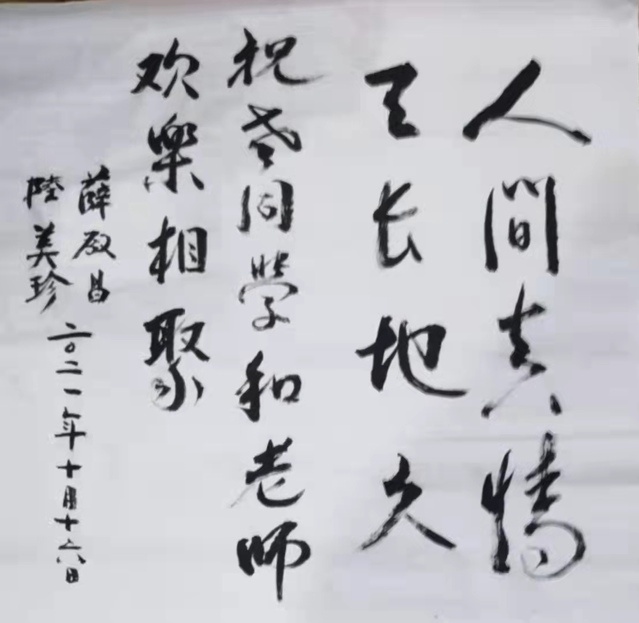 人間真情
天长地久
祝老同學和老师
欢樂相聚
薛啟昌
陸美珍
二〇二一年十月十六日